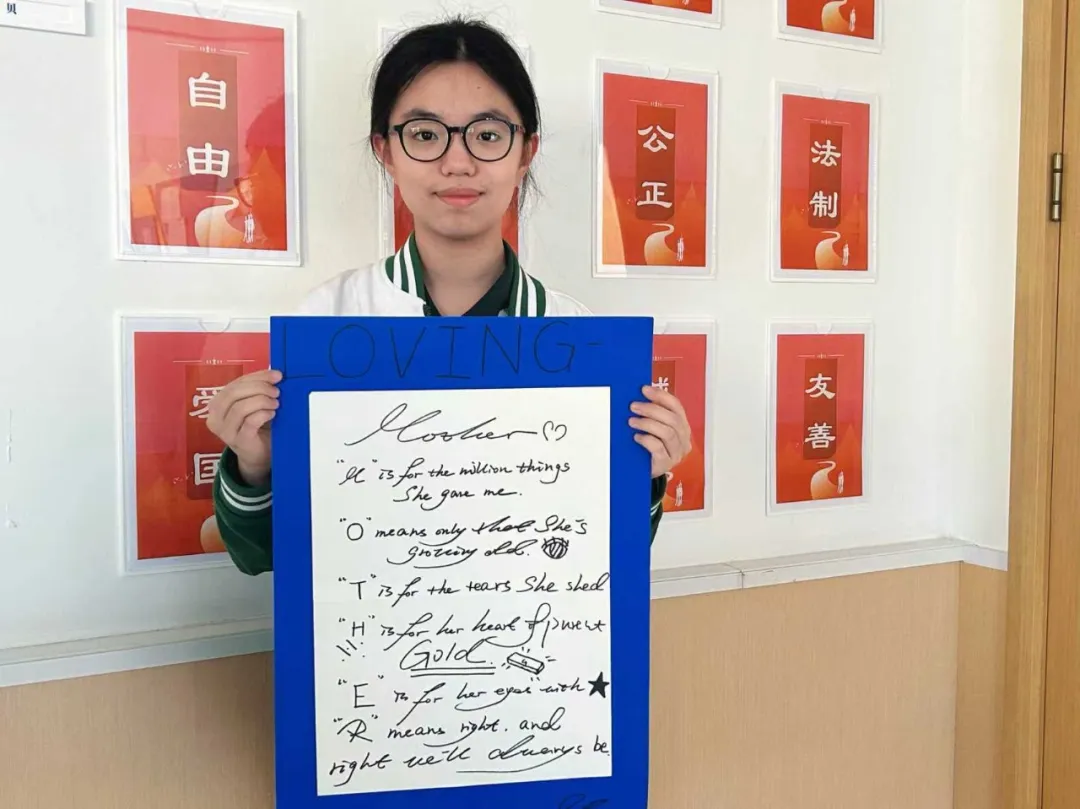 贝
自由
公正
法制
爱国
友善
LOVING-
Mother
"M" is for the million things
She gave me.
"O" means only that She's
growing old.
"T" is for the tears She shed
"H" is for her heart of purest
Gold.
"E" is for her eyes with
"R" means right. and
right we'll always be.